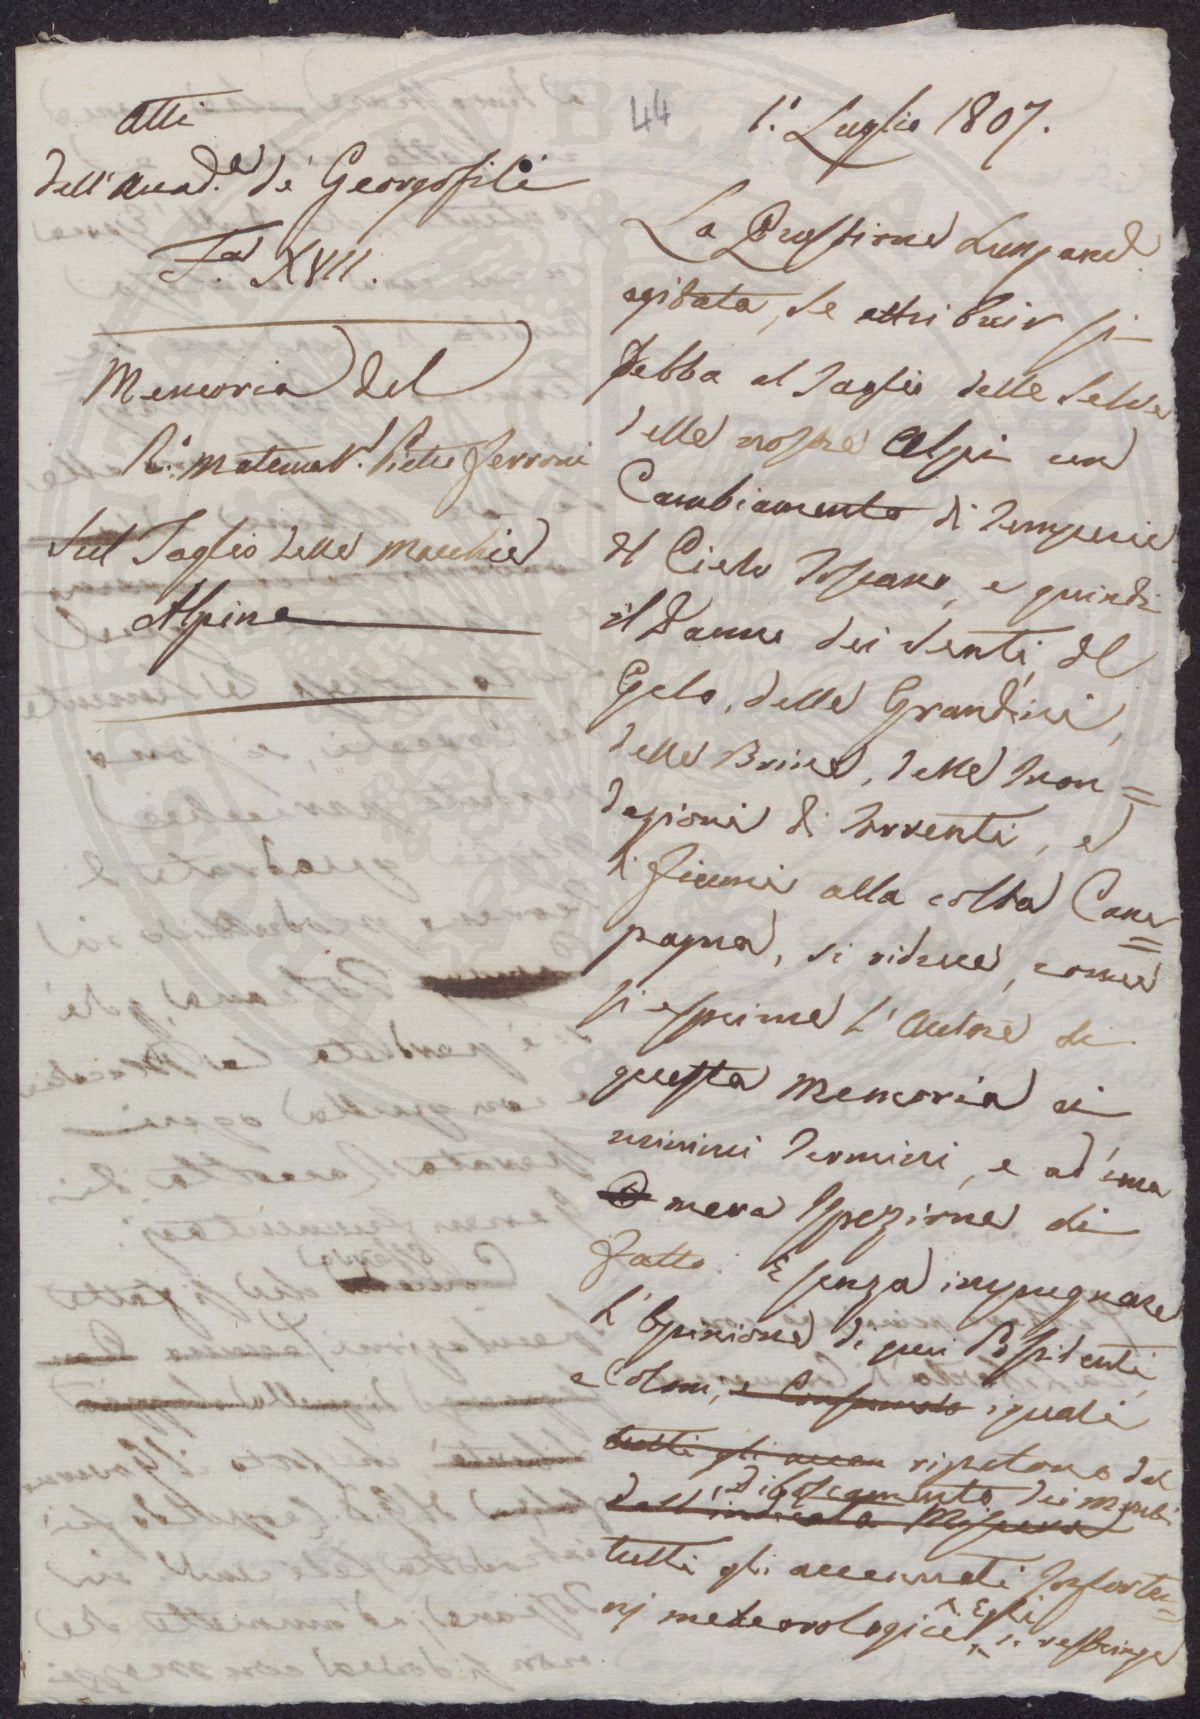 Atti
dell'Accad.a de' Georgofili
T.a XVII.
Memoria del
R.o Matemat.o Pietro Ferroni
Sul Taglio delle Macchie
Alpine
44
1.o Luglio 1807.
La Questione lungamen.
agitata, se attribuir si
debba al Taglio delle Selve
delle nostre Alpi un
Cambiamento di Temperie
del Cielo Toscano, e quindi
il Danno dei Venti, del
Gelo, delle Grandini,
delle Brine, delle Inon=
dazioni di Torrenti, e
di fiumi alla colta Cam=
pagna, si riduce, come
si esprime l'Autore di
questa Memoria ai
minimi termini, e ad una
mera Ispezione di
fatto. E senza impugnare
l'Opinione di quei Possidenti
e Coloni, i quali
tutti gli accen ripetono dal
Diboscamento dei Monti
dall'indicata
tutti gli accennati Infortu=
nj meteorologici, Egli si restringe